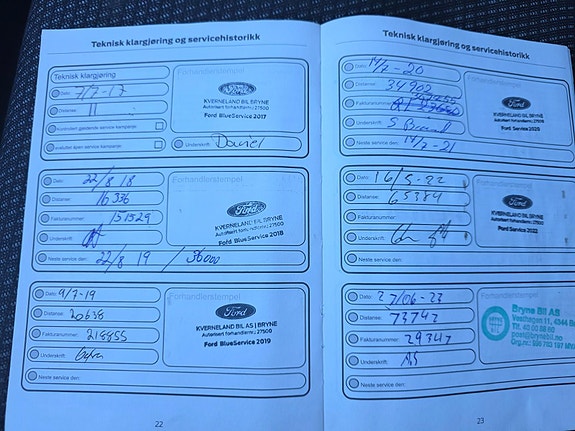 Teknisk klargjøring og servicehistorikk
Teknisk klargjøring
Dato: 7/7-17
Distanse: 11
Kontrollert gjeldende service kampanje:
Underskrift: Daniel
Forhandlerstempel
KVERNELAND BIL BRYNE
Autorisert forhandlernr.: 27500
Ford BlueService 2017
Dato: 22/8 18
Distanse: 16336
Fakturanummer: 151529
Underskrift:
Neste service den: 22/8 19 / 36000
Forhandlerstempel
Ford
KVERNELAND BIL BRYNE
Autorisert forhandlernr.: 27500
Ford BlueService 2018
Dato: 9/7-19
Distanse: 20638
Fakturanummer: 218855
Underskrift:
Neste service den:
Forhandlerstempel
Ford
KVERNELAND BIL AS | BRYNE
Autorisert forhandlernr.: 27500
Ford BlueService 2019
22
Teknisk klargjøring og servicehistorikk
Dato: 14/7-20
Distanse: 34902
Fakturanummer:
Underskrift:
Neste service den: 14/7-21
Forhandlerstempel
Ford
KVERNELAND BIL BRYNE
Autorisert forhandlernr.: 27500
Ford Service 2020
Dato: 16/5-22
Distanse: 65384
Fakturanummer:
Underskrift:
Neste service den:
Forhandlerstempel
Ford
KVERNELAND BIL BRYNE
Autorisert forhandlernr.: 27500
Ford Service 2022
Dato: 27/06-23
Distanse: 73747
Fakturanummer: 29347
Underskrift:
Neste service den:
Bryne Bil AS
Vesthagen 11, 4344
Tlf. 40 00 68 60
post@brynebil.no
23